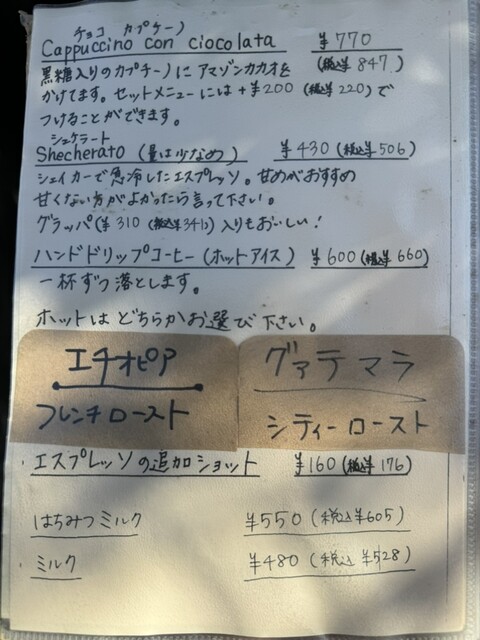 チョコ カプチーノ
Cappuccino con ciocolata ¥770
黒糖入りのカプチーノにアマゾンカカオを (税込¥847)
かけてます。セットメニューには+¥200 (税込¥220)で
つけることができます。
シェケラート
Shecherato (量は少なめ) ¥430 (税込¥506)
シェイカーで急冷したエスプレッソ。甘めがおすすめ
甘くない方がよかったら言って下さい。
グラッパ(¥310 (税込¥341)) 入りもおいしい!
ハンドドリップコーヒー(ホットアイス) ¥600 (税込¥660)
一杯ずつ落とします。
ホットはどちらかお選び下さい。
エチオピア グァテマラ
フレンチロースト シティーロースト
エスプレッソの追加ショット ¥160 (税込¥176)
はちみつミルク ¥550 (税込¥605)
ミルク ¥480 (税込¥528)